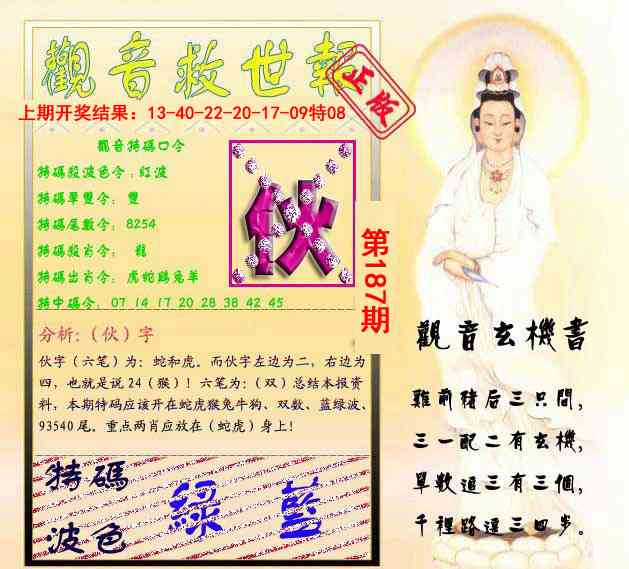 觀音救世報
正版
上期开奖结果：13-40-22-20-17-09特08
觀音特碼口令
特碼殺波色令：紅波
特碼單雙令： 雙
特碼尾數令：8254
特碼殺肖令： 龍
特碼出肖令： 虎蛇鷄兔羊
特中碼令：07 14 17 20 28 38 42 45
伙
第187期
分析:（伙）字
伙字（六笔）为：蛇和虎。而伙字左边为二，右边为
四，也就是说24（猴）！六笔为：（双）总结本报资
料，本期特码应该开在蛇虎猴兔牛狗、双数、蓝绿波、
93540尾。重点两肖应放在（蛇虎）身上！
特碼
波色
綠 藍
觀音玄機書
雞前豬后三只間，
三一配二有玄機，
單數逼三有三個，
千裡路遥三四步。